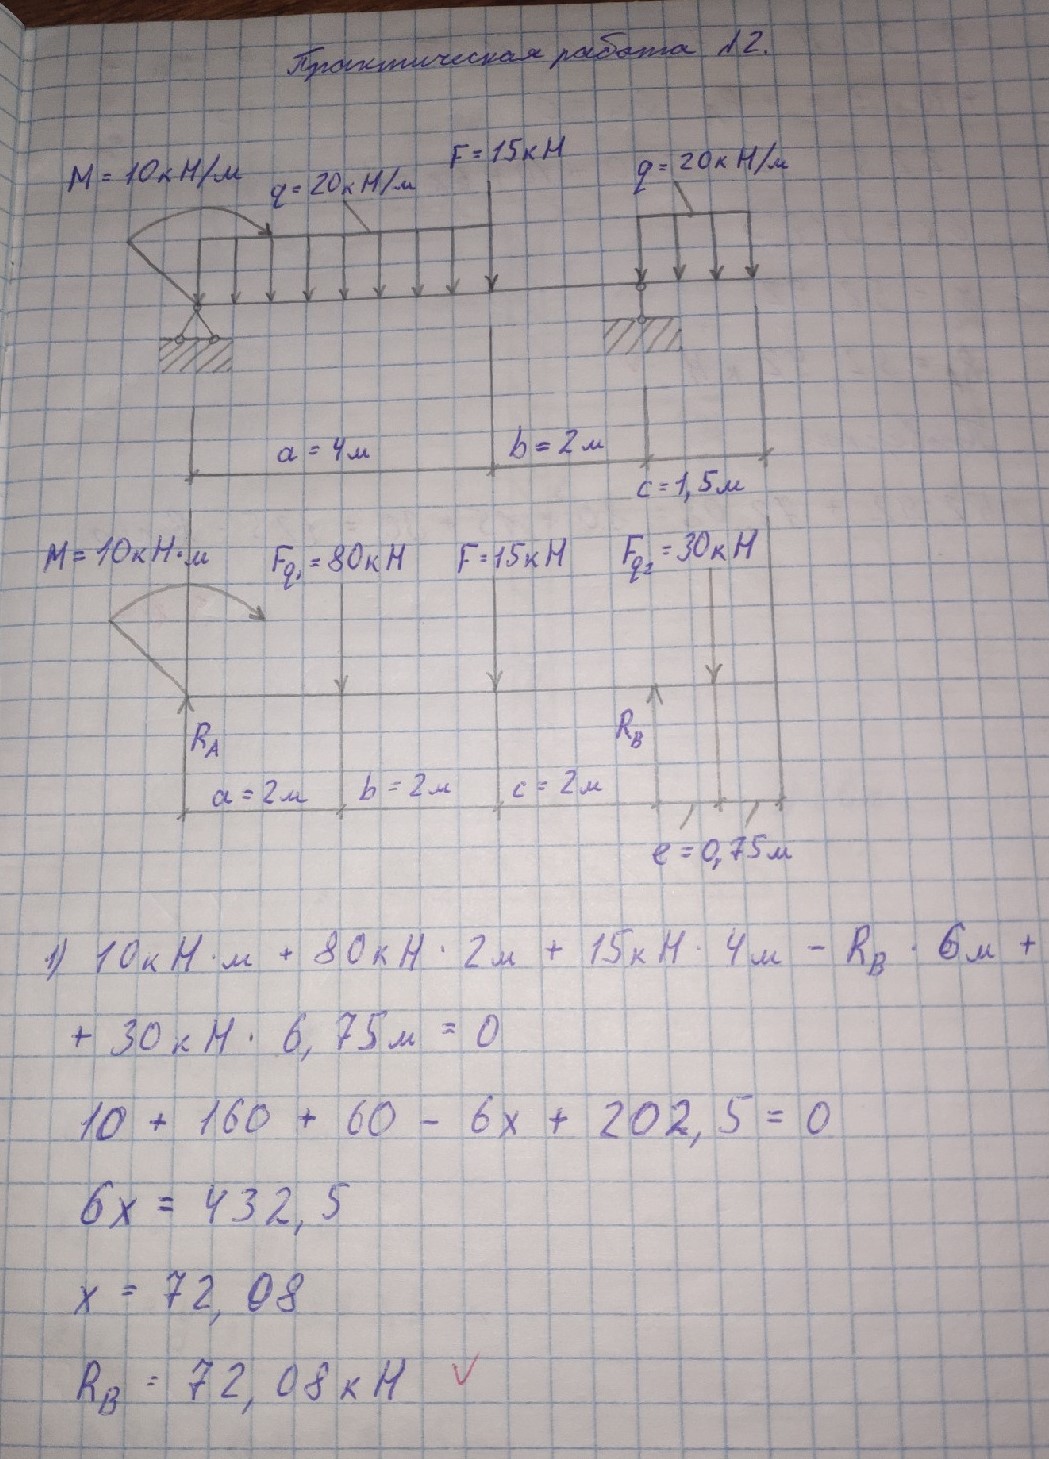 Практическая работа №2.
M = 10кН/м
q = 20кН/м
F = 15кН
q = 20кН/м
a = 4м
b = 2м
c = 1,5м
M = 10кН·м
Fq₁ = 80кН
F = 15кН
Fq₂ = 30кН
RA
RB
a = 2м
b = 2м
c = 2м
e = 0,75м
1) 10кН·м + 80кН·2м + 15кН·4м - RB·6м +
+ 30кН·6,75м = 0
10 + 160 + 60 - 6x + 202,5 = 0
6x = 432,5
x = 72,08
RB = 72,08кН ✓